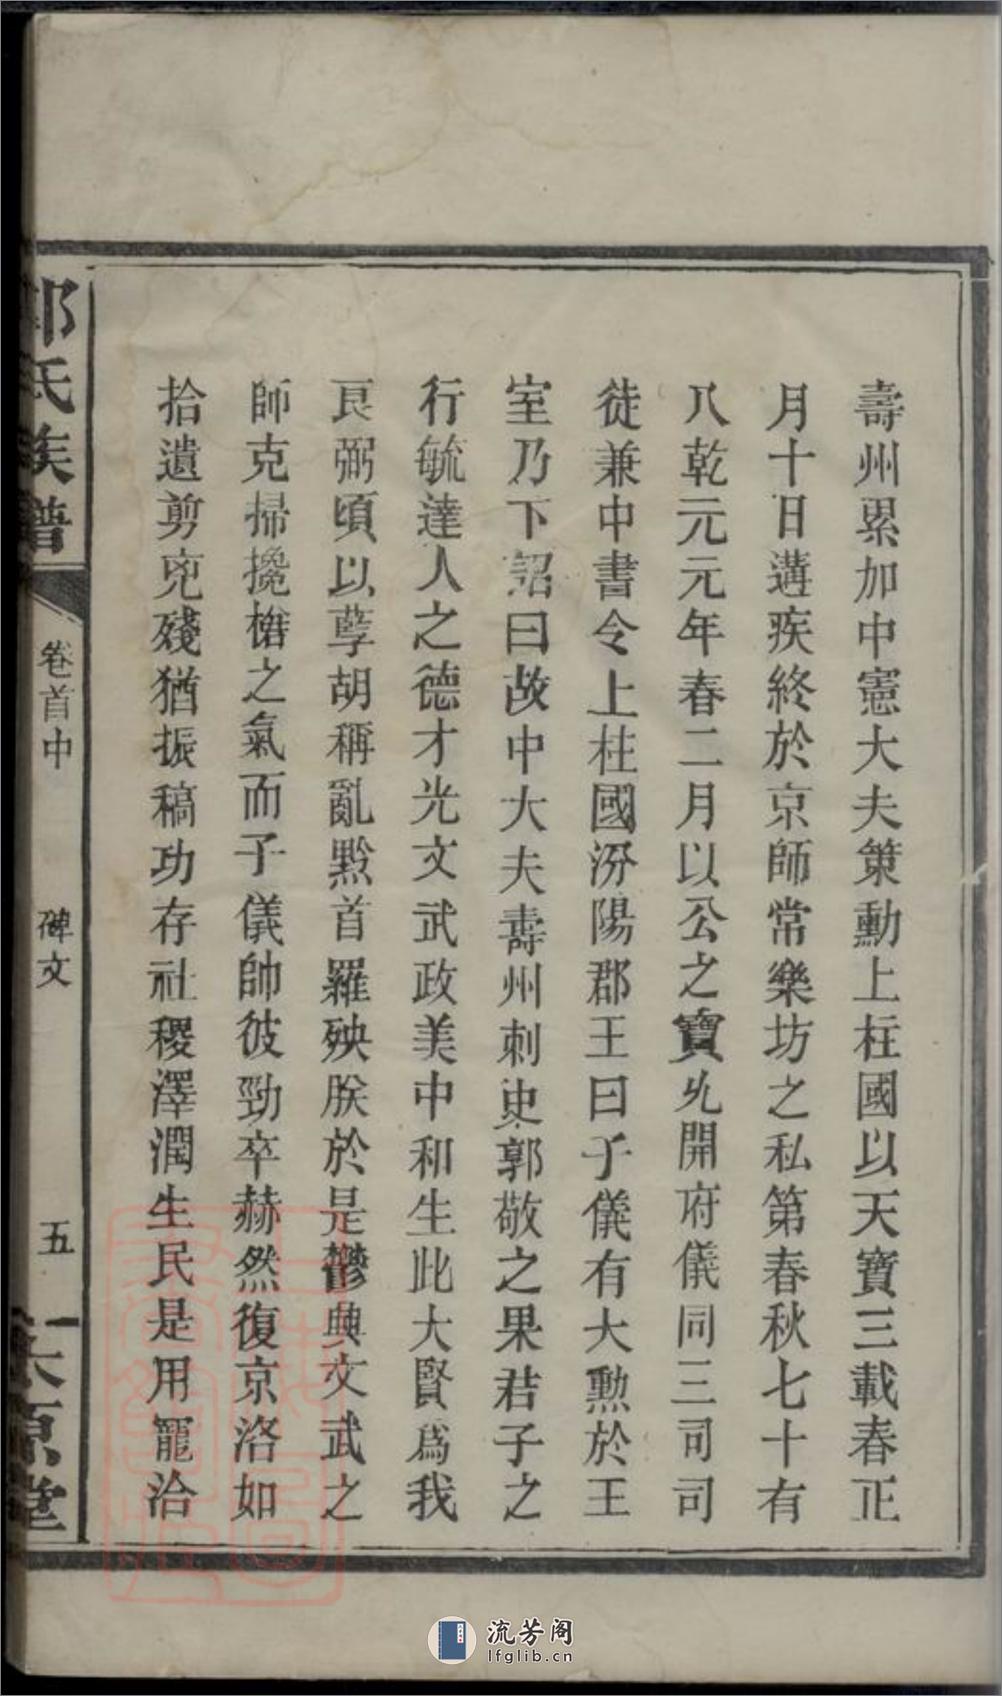 壽州累加中憲大夫策勳上柱國以天寶三載春正
月十日遘疾終於京師常樂坊之私第春秋七十有
八乾元元年春二月以公之寶允開府儀同三司司
徒兼中書令上柱國汾陽郡王曰子儀有大勲於王
室乃下詔曰故中大夫壽州刺史郭敬之果君子之
行毓達人之德才光文武政美中和生此大賢爲我
良弼頃以孽胡稱亂黔首羅殃朕於是鬱興文武之
師克掃攙槍之氣而子儀帥彼勁卒赫然復京洛如
拾遺剪兇殘猶振稿功存社稷澤潤生民是用寵洽
郭氏族譜
卷首中
碑文
五
太原堂
流芳阁
lfglib.cn